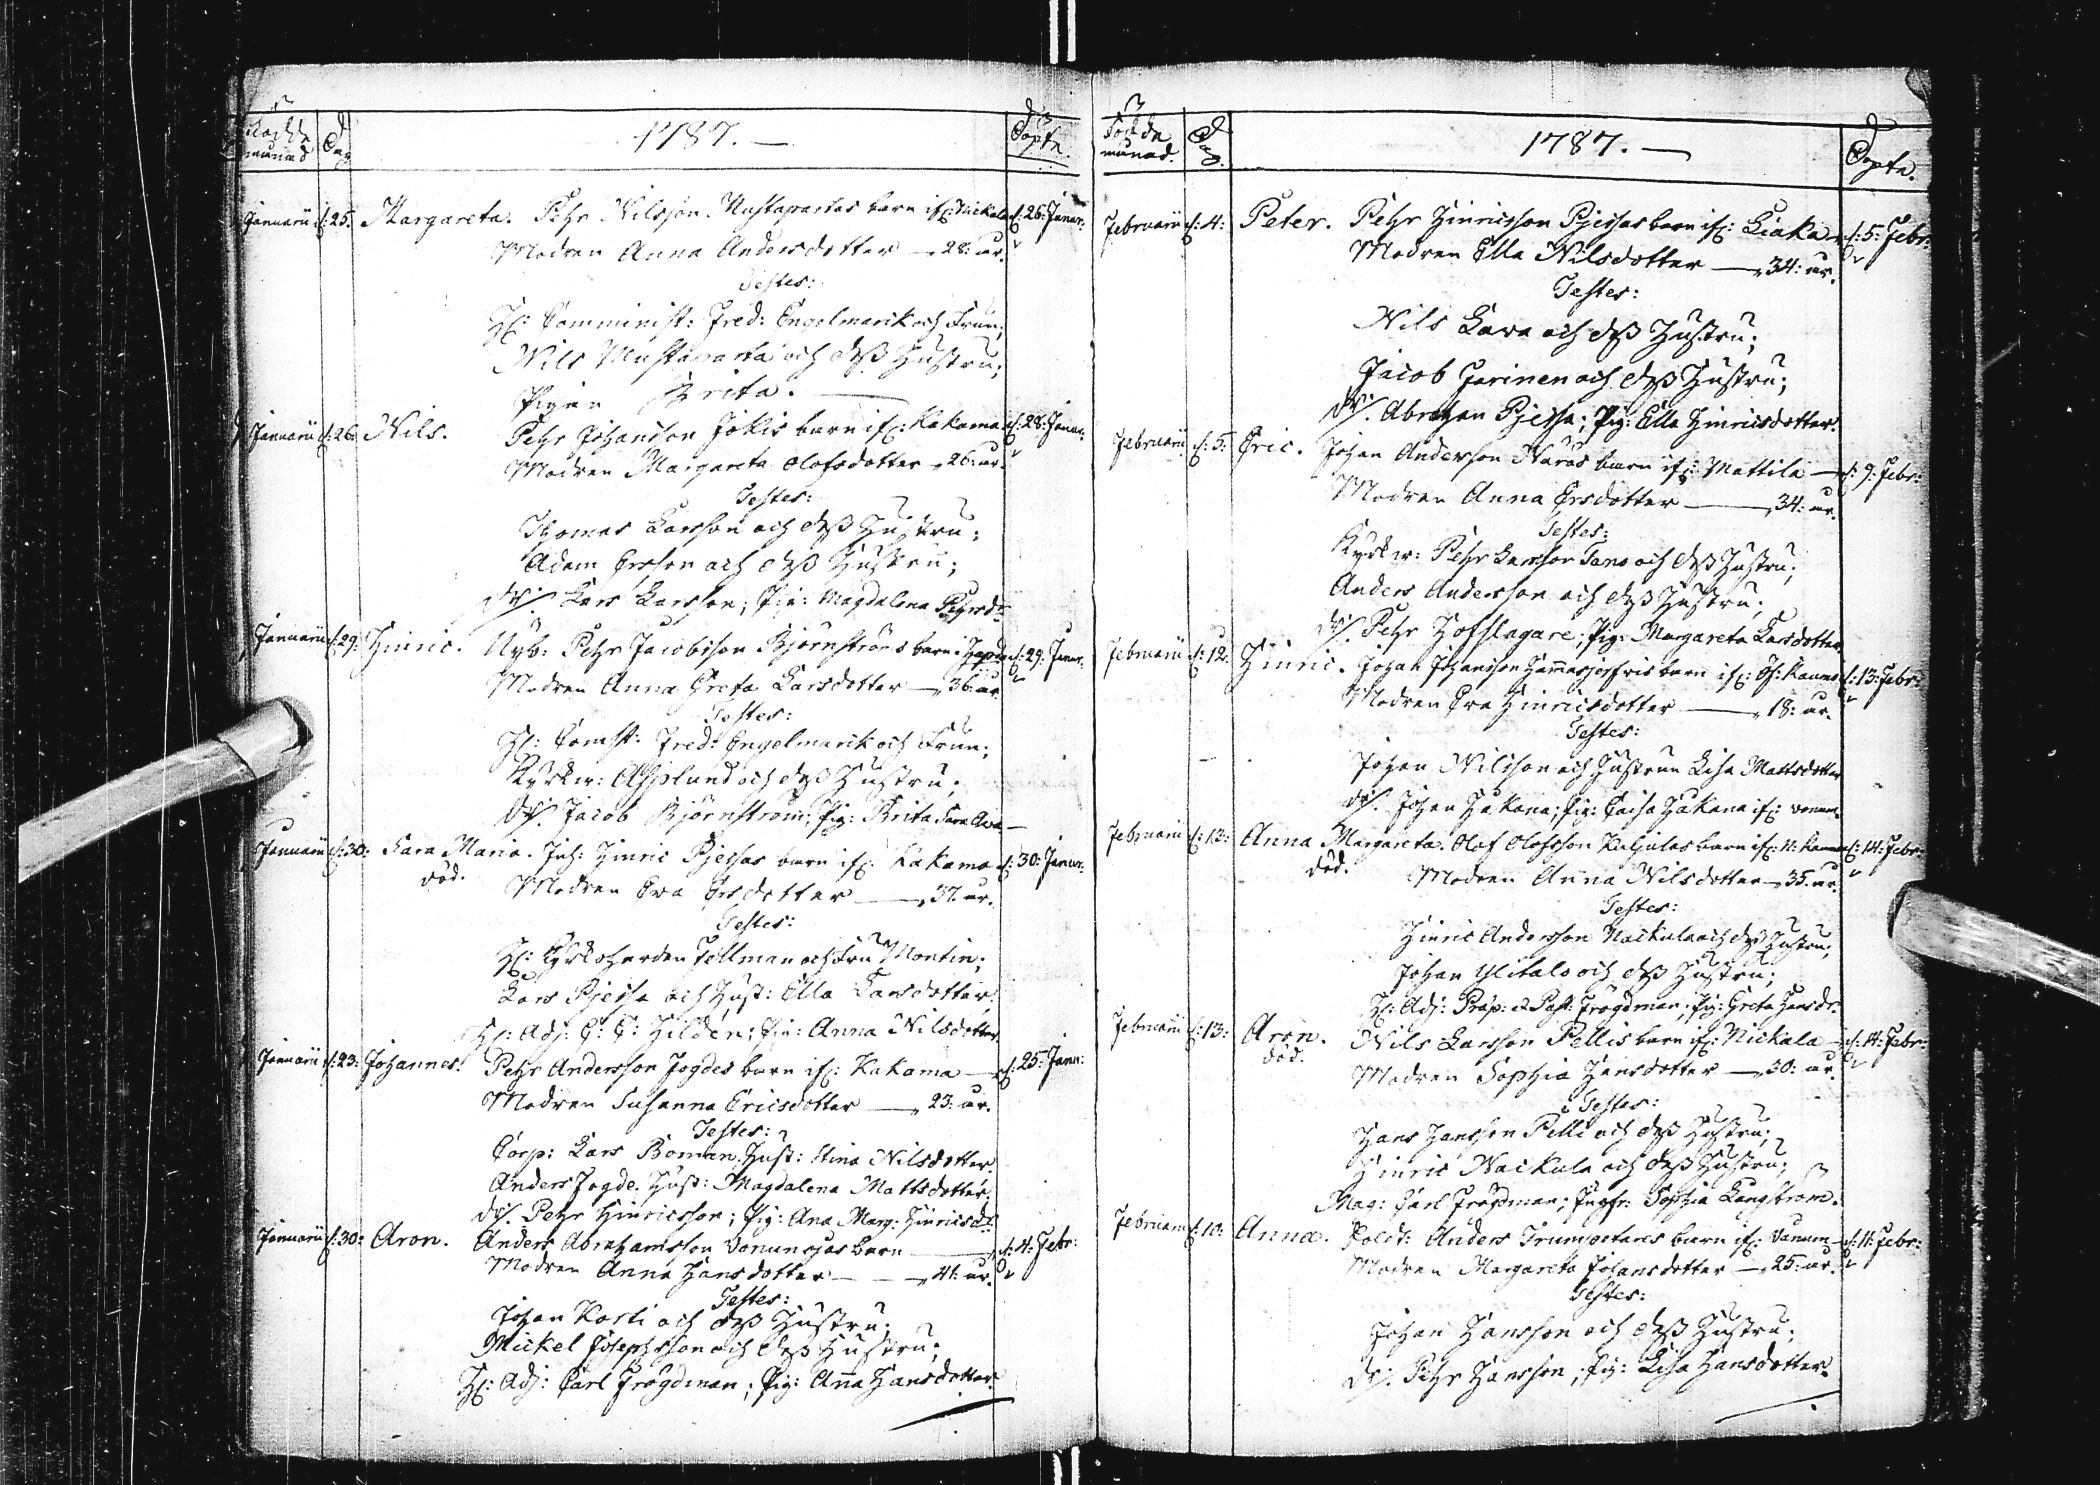 Födde månad Dag 1787. — Döpte.
Januarii d: 25. Margareta. Pehr Nilsson Mustaparkas barn if: Nickala d: 26: Januar:
Modren Anna Andersdotter — 28: år.
Testes:
H: Comminist: Fred: Engelmarck och Frun;
Nils Mustaparta och dess Hustru;
Pigan Brita. —
Januarii d: 26. Nils. Pehr Johansson Jokis barn if: Kakama d: 28: Januar:
Modren Margareta Olofsdotter — 26: år.
Testes:
Thomas Larsson och dess Hustru;
Adam Ersson och dess Hustru;
Dr. Lars Larsson; Pig: Magdalena Pehrsdr
Januarii d: 29: Hinric. Nyb: Pehr Jacobsson Björnströms barn d: 29: Januar:
Modren Anna Greta Larsdotter — 36: år.
Testes:
H: Comst: Fred: Engelmarck och Frun;
Kyrkw: Asplund och dess Hustru;
Dr. Jacob Björnström; Pig: Brita
Januarii d: 30: Sara Maria. Inh: Hinric Pjessas barn if: Kakama d: 30: Januar:
död. Modren Eva Ersdotter — 37: år.
Testes:
H: Kyrkoherden Fellman och Fru Montin;
Lars Pjessa och Hust: Ella Larsdotter
H: Adj: E: E: Hildén; Pig: Anna Nilsdotter
Januarii d: 23: Johannes. Pehr Andersson Jogdes barn if: Kakama — d: 25: Janu:
Modren Susanna Ericsdotter — 23: år.
Testes:
Corp: Lars Boman, Hust: Stina Nilsdotter
Anders Jogde. Hust: Magdalena Mattsdotter.
Dr. Pehr Hinricsson; Pig: Ana Marg: Hinricsdr
Januarii d: 30: Aron. Anders Abrahamsson Vonunsjas barn — d: 4: Febr:
Modren Anna Hansdotter — 41: år.
Testes:
Johan Korti och dess Hustru;
Mickel Josephsson och dess Hustru;
H: Adj: Carl Frogdman; Pig: Anna Hansdotter.
Födde månad. Dag. 1787. — Döpte.
Februarii d: 4: Peter. Pehr Hinricsson Pjessas barn if: Liaka — d: 5: Febr:
Modren Ella Nilsdotter — 34: år.
Testes:
Nils Lava och dess Hustru;
Jacob Jarinen och dess Hustru;
Dr. Abraham Pjessa; Pig: Ella Hinricsdotter.
Februarii d: 5: Eric. Johan Andersson Naras barn if: Mattila — d: 9: Febr:
Modren Anna Ersdotter — 34: år.
Testes:
Kyrkw: Pehr Larsson Tano och dess Hustru;
Anders Andersson och dess Hustru;
Dr. Pehr Hofslagare; Pig: Margareta Larsdotter
Februarii d: 12: Hinric. Johan Johansson barn if: d: 13: Febr:
Modren Eva Hinricsdotter — 18: år.
Testes:
Johan Nilsson och Hustrun Lisa Mattsdotter
Dr. Johan Hakana; Pig: Caisa Hakana if:
Februarii d: 13: Anna Margareta. Olof Olofsson Kaljulas barn if: d: 14: Febr:
död. Modren Anna Nilsdotter — 35: år.
Testes:
Hinric Andersson Nackula och dess Hustru;
Johan Ylitalo och dess Hustru;
H: Adj: Præp: et Past: Frogdman; Pig: Greta Hansdr.
Februarii d: 13: Aron. Nils Larsson Pellis barn if: Nickala — d: 14: Febr:
död. Modren Sophia Hansdotter — 30: år.
Testes:
Hans Hansson Pelli och dess Hustru;
Hinric Nackula och dess Hustru;
Mag: Carl Frogdman; Jungfr: Sophia Långström.
Februarii d: 10: Anna. Sold: Anders Trumpetares barn if: Vanum — d: 11: Febr:
Modren Margareta Johansdotter — 25: år.
Testes:
Johan Hansson och dess Hustru;
Dr. Pehr Hansson; Pig: Lisa Hansdotter.